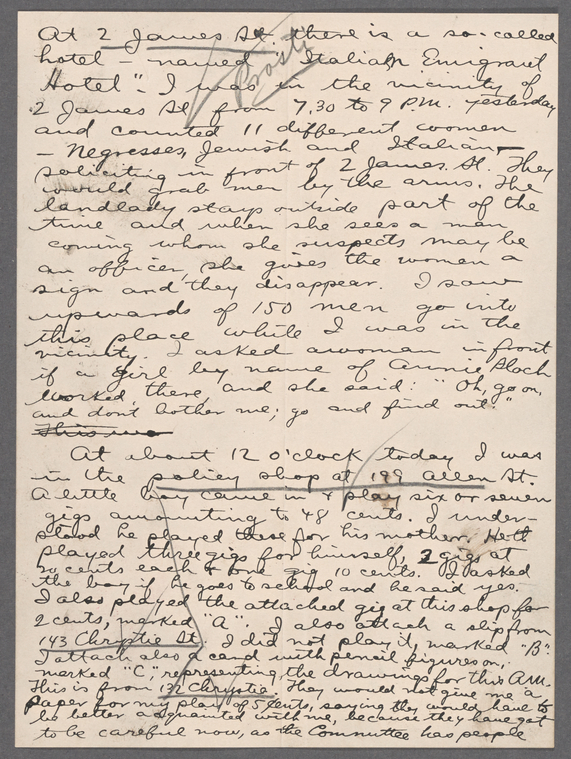 At 2 James St. there is a so-called
hotel - named "Italian Emigrant
Hotel". I was in the vicinity of
Prosti
2 James St. from 7.30 to 9 P.M. yesterday
and counted 11 different women
- Negresses, Jewish and Italian -
soliciting in front of 2 James St. They
would grab men by the arms. The
landlady stays outside part of the
time and when she sees a man
coming whom she suspects may be
an officer, she gives the women a
sign and they disappear. I saw
upwards of 150 men go into
this place while I was in the
vicinity. I asked a woman in front
if a girl by name of Annie Bloch
worked there, and she said: "Oh, go on,
and dont bother me; go and find out."
This wo
At about 12 o'clock today I was
in the policy shop at 199 Allen St.
A little boy came in & play six or seven
gigs amounting to 48 cents. I under-
stood he played these for his mother. He
played three gigs for himself, 2 gigs at
20 cents each & one gig 10 cents. I asked
the boy if he goes to school and he said yes.
I also played the attached gig at this shop for
2 cents, marked "A". I also attach a slip from
143 Chrystie St. I did not play it, marked "B".
I attach also a card with pencil figures on,
marked "C", representing the drawings for this A.M.
This is from 132 Chrystie. They would not give me a
paper for my play of 5 cents, saying they would have to
be better acquainted with me, because they have got
to be careful now, as the Committee has people